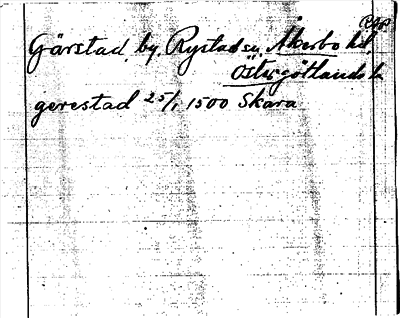 Gärstad, by, Rystad sn, Åkerbo hd,
Östergötlands l.
gerestad 25/1 1500 Skara